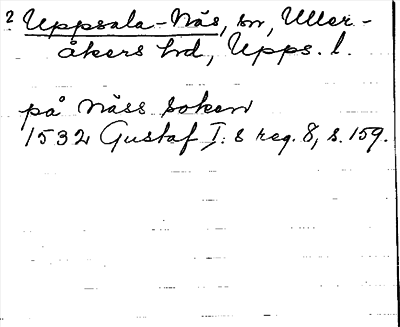 2 Uppsala-Näs, sn, Uller-
åkers hd, Upps. l.
på Näss soken
1532 Gustaf I:s reg. 8, s. 159.